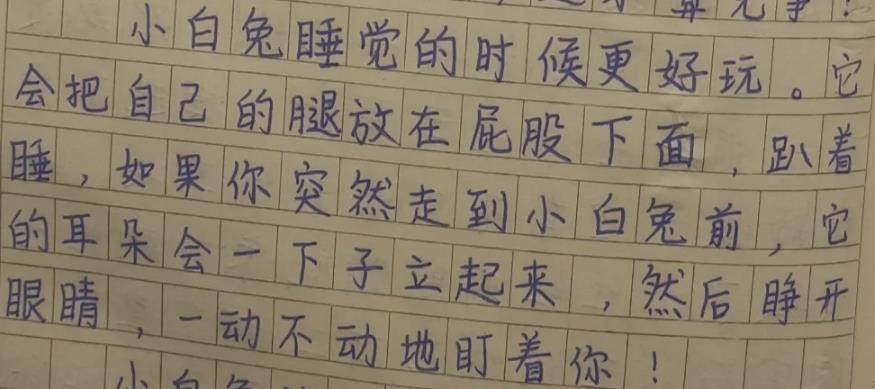 小白兔睡觉的时候更好玩。它
会把自己的腿放在屁股下面，趴着
睡，如果你突然走到小白兔前，它
的耳朵会一下子立起来，然后睁开
眼睛，一动不动地盯着你！
小白兔